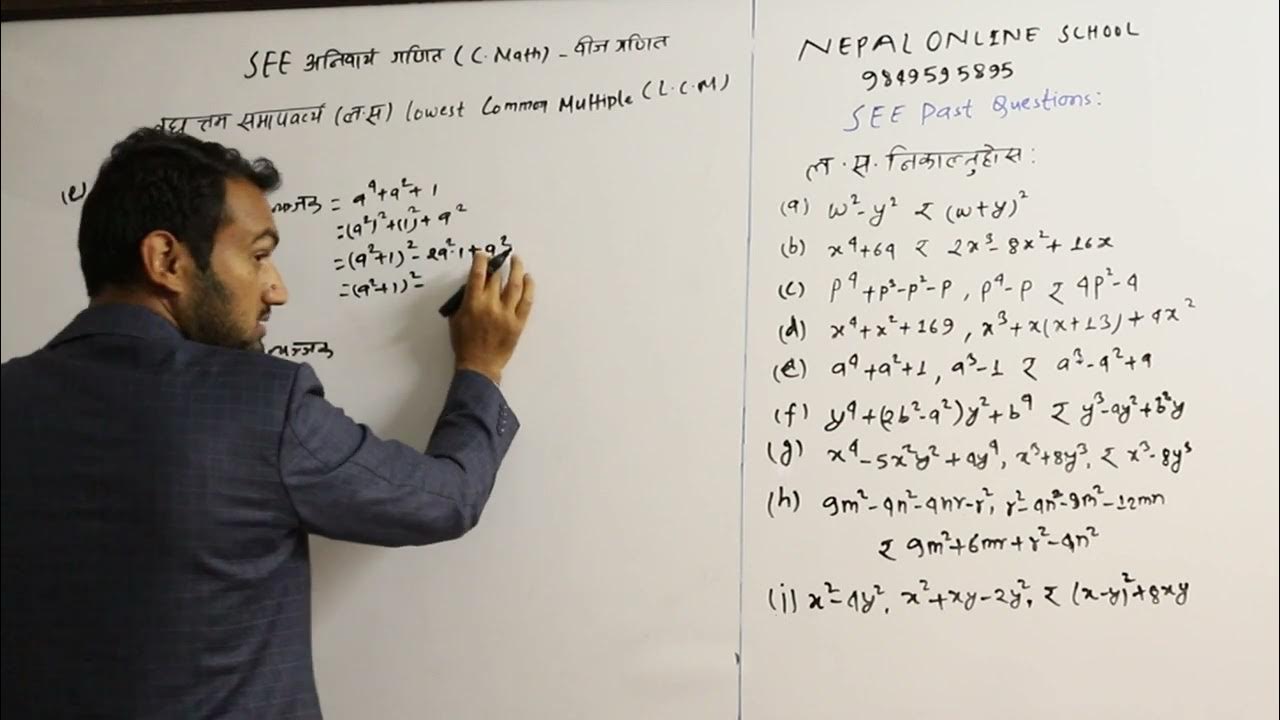 SEE अनिवार्य गणित (C. Math) - वीज गणित
तम समापवर्त्य (ल.स) Lowest Common Multiple (L.C.M)
(e)
= a⁴+a²+1
=(a²)²+(1)²+a²
=(a²+1)²-2a²·1+a²
=(a²+1)²-
NEPAL ONLINE SCHOOL
9849595895
SEE Past Questions:
ल.स. निकाल्नुहोस:
(a) w²-y² र (w+y)²
(b) x⁴+64 र 2x³-8x²+16x
(c) p⁴+p³-p²-p, p⁴-p र 4p²-4
(d) x⁴+x²+169, x³+x(x+13)+4x²
(e) a⁴+a²+1, a³-1 र a³-a²+a
(f) y⁴+(2b²-a²)y²+b⁴ र y³-ay²+b²y
(g) x⁴-5x²y²+4y⁴, x³+8y³, र x³-8y³
(h) 9m²-4n²-4nr-r², r²-4n²-9m²-12mn
र 9m²+6mr+r²-4n²
(i) x²-4y², x²+xy-2y², र (x-y)²+8xy